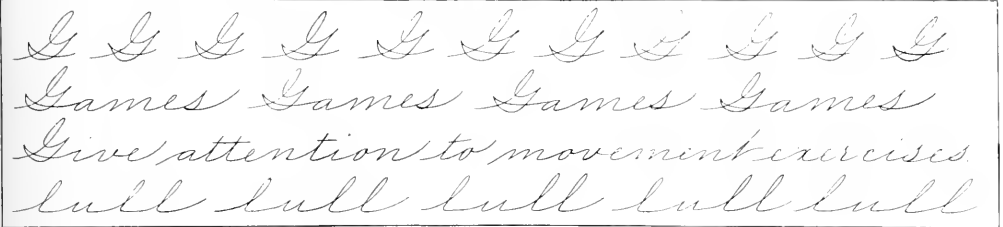 G G G G G G G G G G G
Games Games Games Games
Give attention to movement exercises.
lull lull lull lull lull